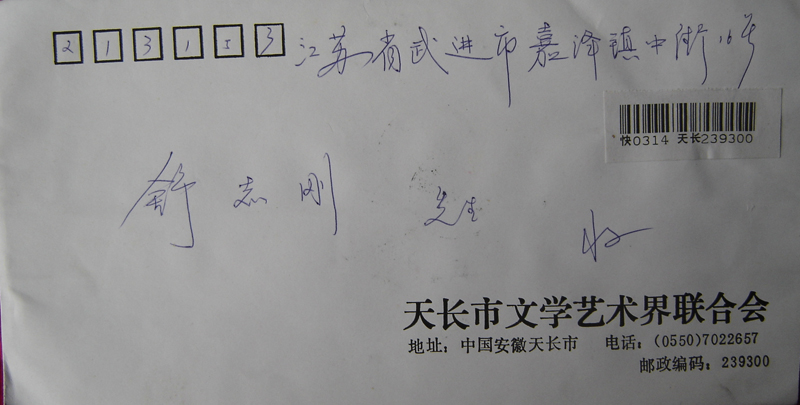 213153 江苏省武进市嘉泽镇中街16号
快0314 天长239300
舒志刚 先生 收
天长市文学艺术界联合会
地址：中国安徽天长市 电话：(0550)7022657
邮政编码：239300